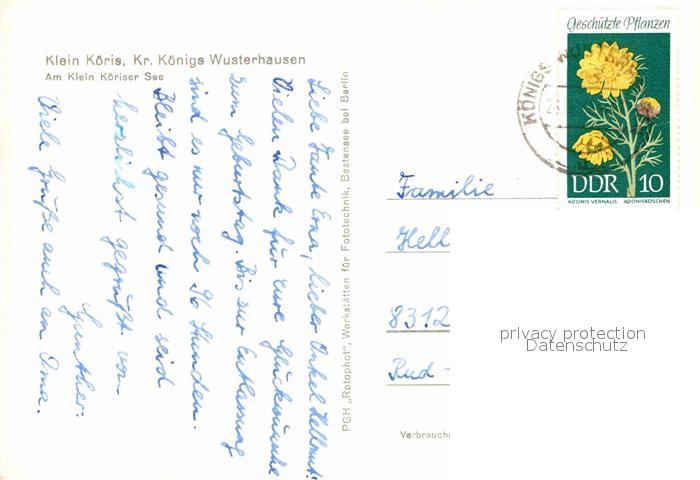 Klein Köris, Kr. Königs Wusterhausen
Am Klein Köriser See
Liebe Tante Erna, lieber Onkel Hellmut!
Vielen Dank für Eure Glückwünsche
zum Geburtstag. Bis zur Entlassung
sind es nur noch 96 Stunden.
Bleibt gesund und seid
herzlichst gegrüßt von
Günther.
Viele Grüße auch an Oma.
PGH „Rotophot", Werkstätten für Fototechnik, Bestensee bei Berlin
Geschützte Pflanzen
KÖNIGS WU
DDR 10
ADONIS VERNALIS ADONISRÖSCHEN
Familie
Hell
8312
Rud-
privacy protection
Datenschutz
Verbrauch